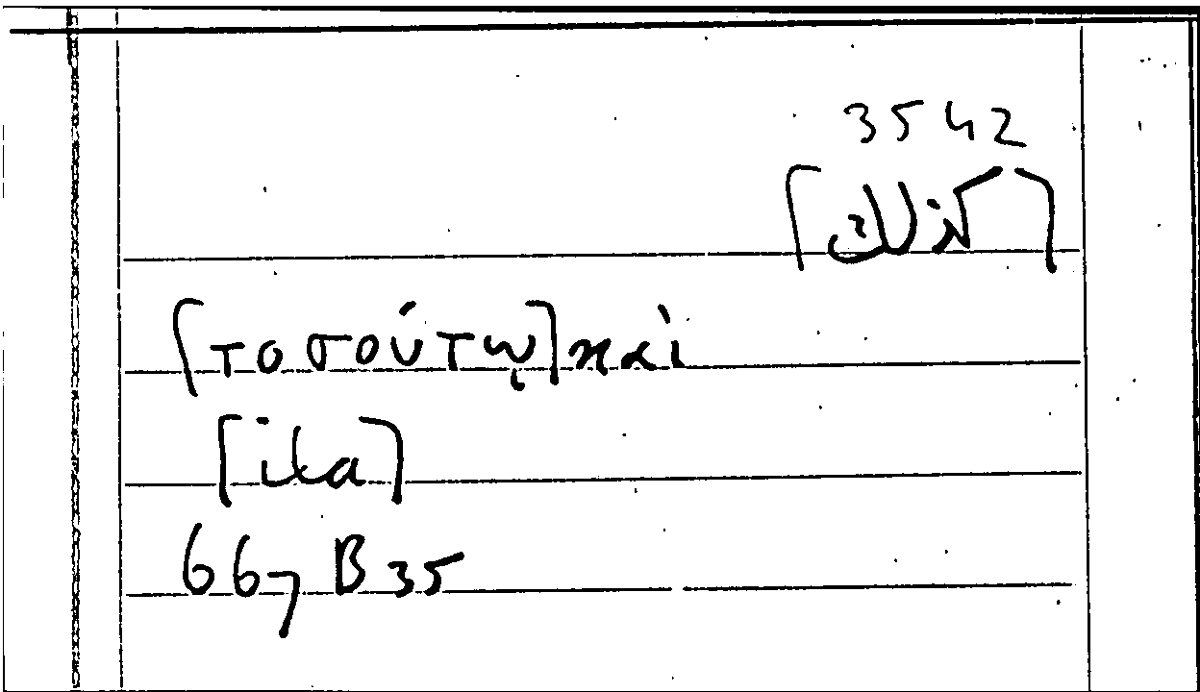 3542
⌈كذلك⌉
⌈τοσούτῳ⌉ καὶ
⌈ita⌉
667 B 35